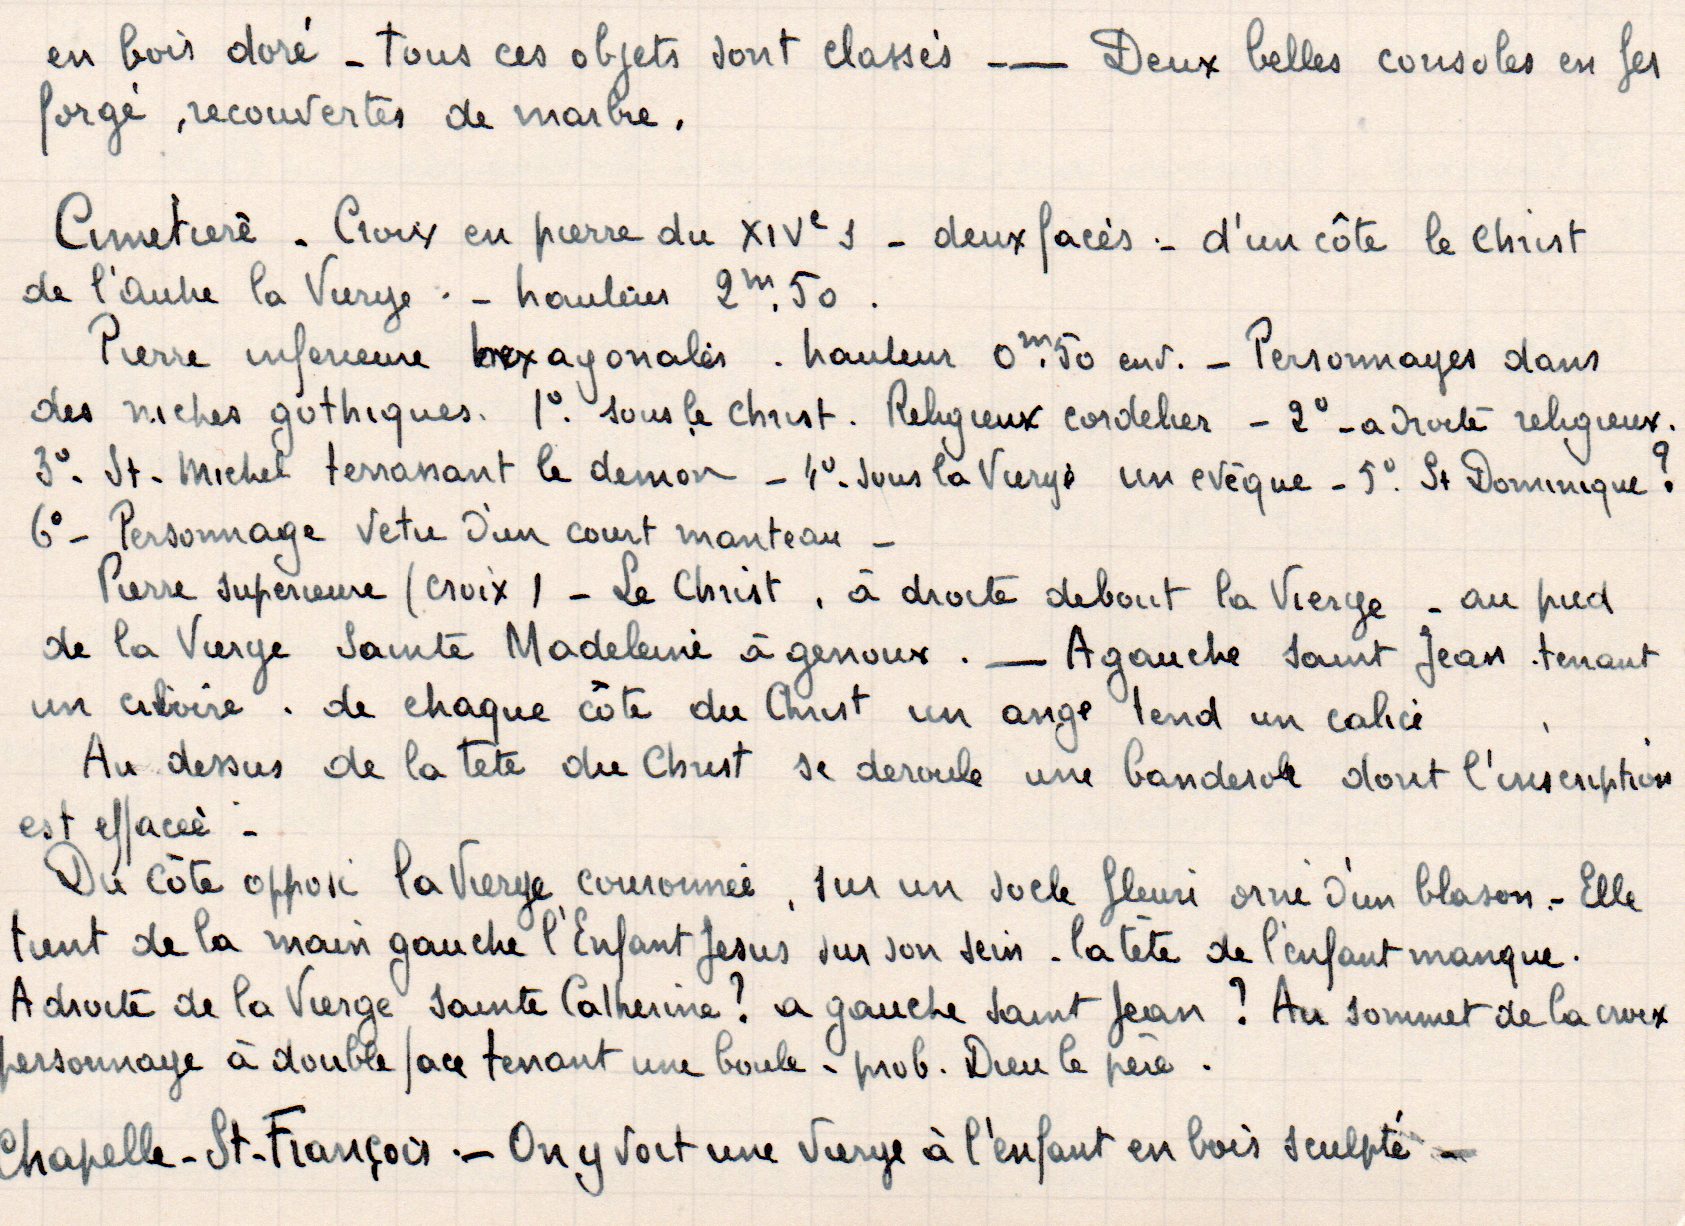 en bois doré - tous ces objets sont classés -— Deux belles consoles en fer
forgé, recouvertes de marbre.
Cimetière - Croix en pierre du XIVe s - deux faces - d'un côté le Christ
de l'autre la Vierge - hauteur 2m,50.
Pierre inferieure hexagonales. hauteur 0m.50 env. - Personnages dans
des niches gothiques. 1°. sous le Christ. Religieux cordelier - 2° - a droite religieux.
3°. St. Michel terrassant le demon - 4°. sous la Vierge un evêque - 5°. St Dominique ?
6° - Personnage vetu d'un court manteau -
Pierre superieure (croix) - Le Christ, à droite debout la Vierge - au pied
de la Vierge Sainte Madeleine à genoux. — A gauche saint Jean tenant
un ciboire. de chaque côté du Christ un ange tend un calice
Au dessus de la tete du Christ se deroule une banderole dont l'inscription
est effacée -
Du côté opposé la Vierge couronnée, sur un socle fleuri orné d'un blason - Elle
tient de la main gauche l'Enfant Jesus sur son sein. la tête de l'enfant manque.
A droite de la Vierge sainte Catherine ? a gauche saint Jean ? Au sommet de la croix
personnage à double face tenant une boule - prob. Dieu le père.
Chapelle - St-François. - On y voit une Vierge à l'enfant en bois sculpté -